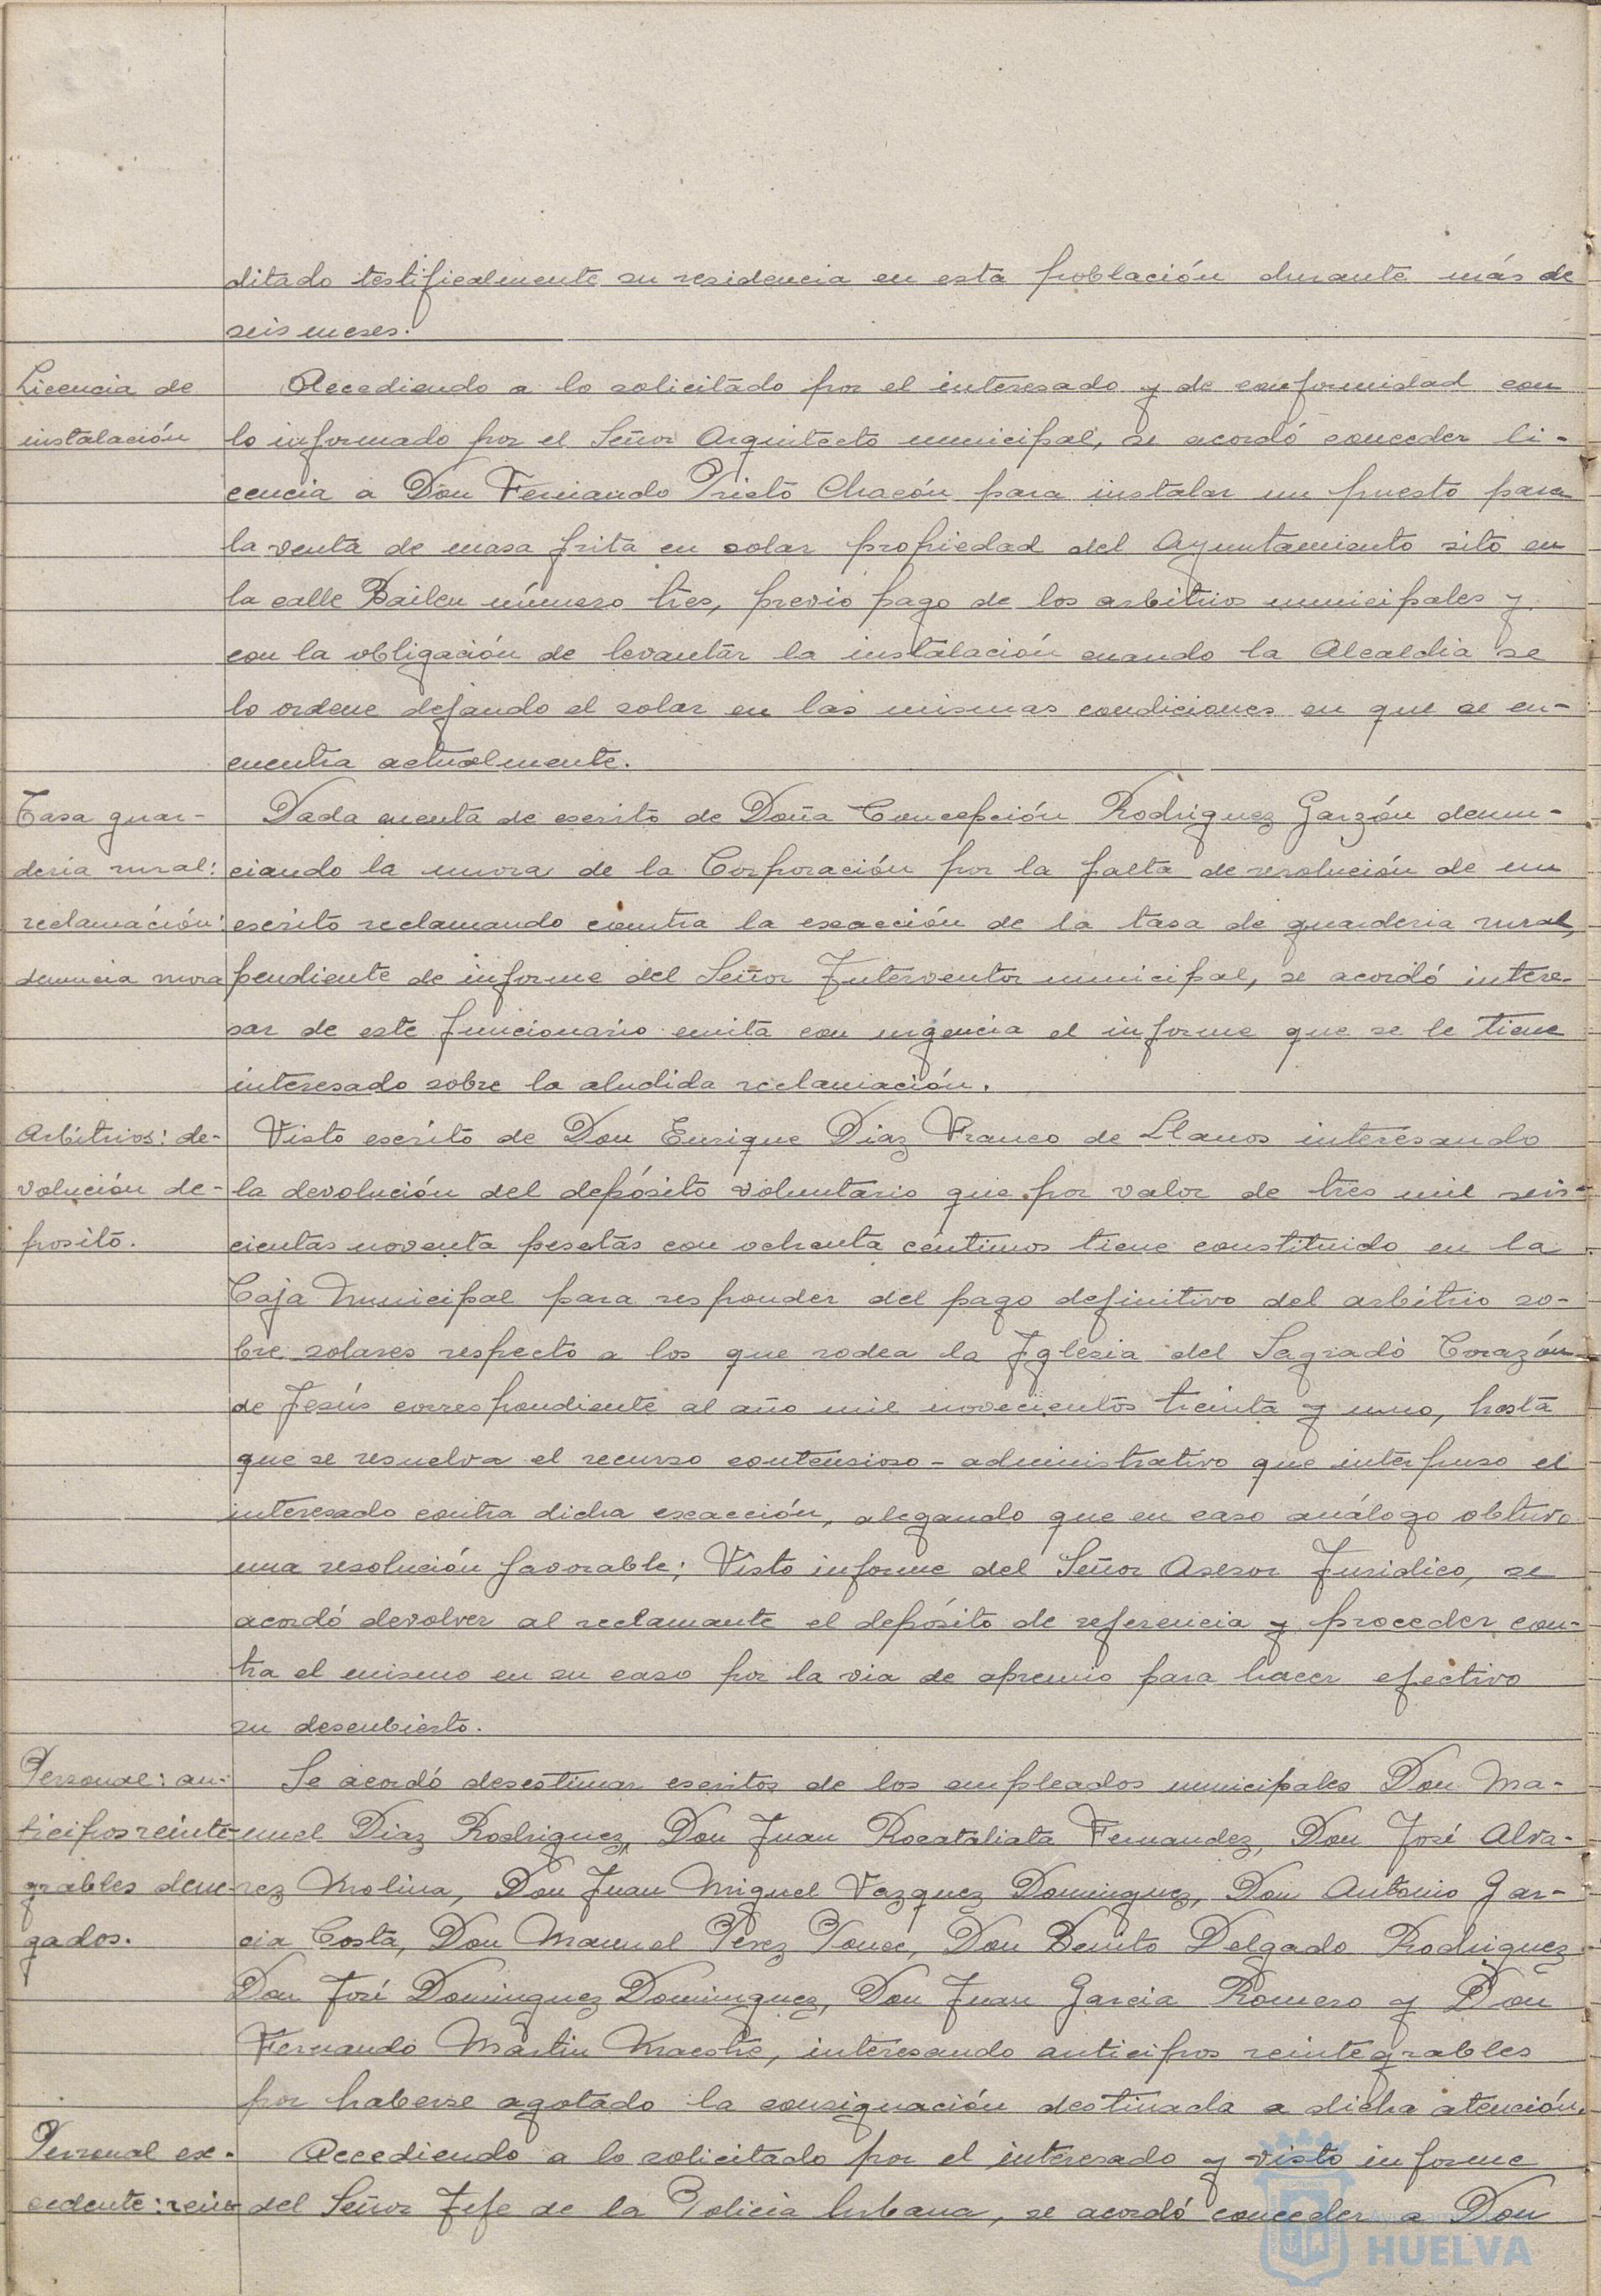 ditado testificalmente su residencia en esta población durante más de
seis meses.
Licencia de
instalación
Accediendo a lo solicitado por el interesado y de conformidad con
lo informado por el Señor Arquitecto municipal, se acordó conceder li-
cencia a Don Fernando Prieto Chacón para instalar un puesto para
la venta de masa frita en solar propiedad del Ayuntamiento sito en
la calle Bailen número tres, previo pago de los arbitrios municipales y
con la obligación de levantar la instalación cuando la Alcaldia se
lo ordene dejando el solar en las mismas condiciones en que se en-
cuentra actualmente.
Tasa guar-
deria rural:
reclamación:
denuncia mora
Dada cuenta de escrito de Doña Concepción Rodriguez Garzón denun-
ciando la mora de la Corporación por la falta de resolución de un
escrito reclamando contra la exacción de la tasa de guarderia rural,
pendiente de informe del Señor Interventor municipal, se acordó intere-
sar de este funcionario emita con urgencia el informe que se le tiene
interesado sobre la aludida reclamación.
Arbitrios: de-
volución de-
posito.
Visto escrito de Don Enrique Diaz Franco de Llanos interesando
la devolución del depósito voluntario que por valor de tres mil seis-
cientas noventa pesetas con ochenta céntimos tiene constituido en la
Caja Municipal para responder del pago definitivo del arbitrio so-
bre solares respecto a los que rodea la Iglesia del Sagrado Corazón
de Jesús correspondiente al año mil novecientos treinta y uno, hasta
que se resuelva el recurso contensioso-administrativo que interpuso el
interesado contra dicha exacción, alegando que en caso análogo obtuvo
una resolución favorable; Visto informe del Señor Asesor Juridico, se
acordó devolver al reclamante el depósito de referencia y proceder con-
tra el mismo en su caso por la via de apremio para hacer efectivo
su descubierto.
Personal: an-
ticipos reinte-
grables dene-
gados.
Se acordó desestimar escritos de los empleados municipales Don Ma-
nuel Diaz Rodriguez, Don Juan Rocataliata Fernandez, Don José Alva-
rez Molina, Don Juan Miguel Vazquez Dominguez, Don Antonio Gar-
cia Costa, Don Manuel Perez Ponce, Don Benito Delgado Rodriguez
Don José Dominguez Dominguez, Don Juan Garcia Romero y Don
Fernando Martin Maestre, interesando anticipos reintegrables
por haberse agotado la consignación destinada a dicha atención.
Personal ex-
cedente: rein-
Accediendo a lo solicitado por el interesado y visto informe
del Señor Jefe de la Policia Urbana, se acordó conceder a Don
Ayuntamiento
HUELVA